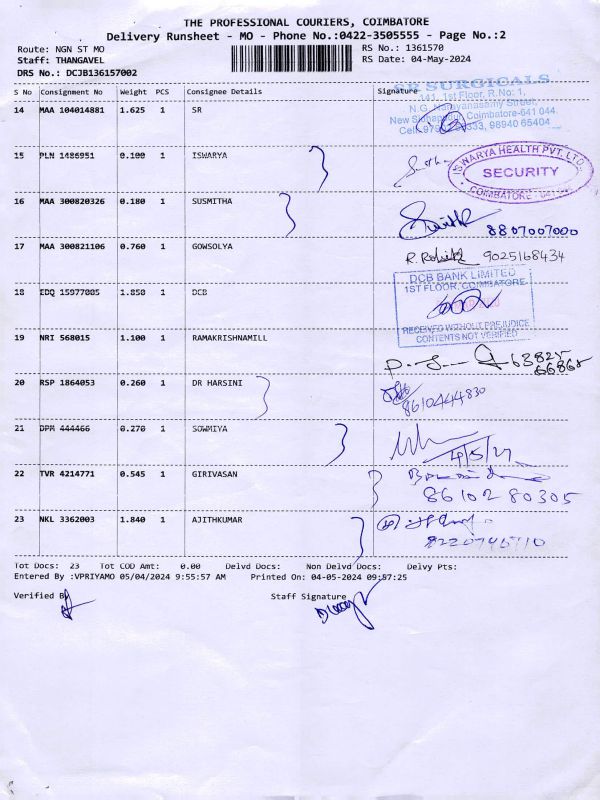 THE PROFESSIONAL COURIERS, COIMBATORE
Delivery Runsheet - MO - Phone No.:0422-3505555 - Page No.:2
Route: NGN ST MO
RS No.: 1361570
Staff: THANGAVEL
RS Date: 04-May-2024
DRS No.: DCJB136157002
S No Consignment No Weight PCS Consignee Details Signature
SR SURGICALS
141, 1st Floor, R.No: 1,
N.G. Narayanasamy Street,
New Sidhapudur, Coimbatore-641 044.
98940 65404
14 MAA 104014881 1.625 1 SR
15 PLN 1486951 0.100 1 ISWARYA
ISWARYA HEALTH PVT. LTD.
SECURITY
COIMBATORE
16 MAA 300820326 0.180 1 SUSMITHA
8807007000
17 MAA 300821106 0.760 1 GOWSOLYA
9025168434
18 EDQ 15977005 1.850 1 DCB
DCB BANK LIMITED
1ST FLOOR, COIMBATORE
RECEIVED WITHOUT PREJUDICE
CONTENTS NOT VERIFIED
19 NRI 568015 1.100 1 RAMAKRISHNAMILL
63825
66865
20 RSP 1864053 0.260 1 DR HARSINI
8610444830
21 DPM 444466 0.270 1 SOWMIYA
22 TVR 4214771 0.545 1 GIRIVASAN
8610280305
23 NKL 3362003 1.840 1 AJITHKUMAR
Tot Docs: 23 Tot COD Amt: 0.00 Delvd Docs: Non Delvd Docs: Delvy Pts:
Entered By :VPRIYAMO 05/04/2024 9:55:57 AM Printed On: 04-05-2024 09:57:25
Verified By
Staff Signature